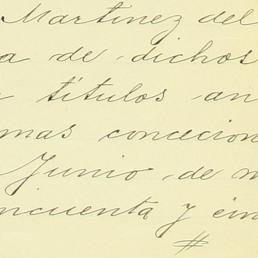 Martinez del
a de dichos
títulos an
mas concecion
Junio de m
incuenta y cin